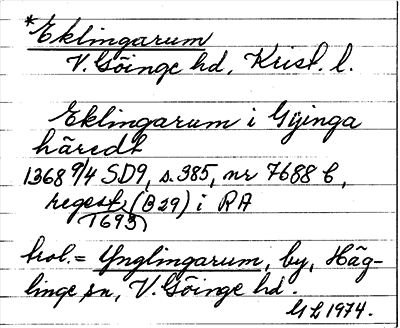 *Eklingarum
V. Göinge hd, Krist. l.
Eklingarum i Gyinga
häredt
1368 9/4 SD9, s. 385, nr 7688 b,
regest (B 29) i RA
T693)
trol. = Ynglingarum, by, Häg-
linge sn, V. Göinge hd.
GL 1974.